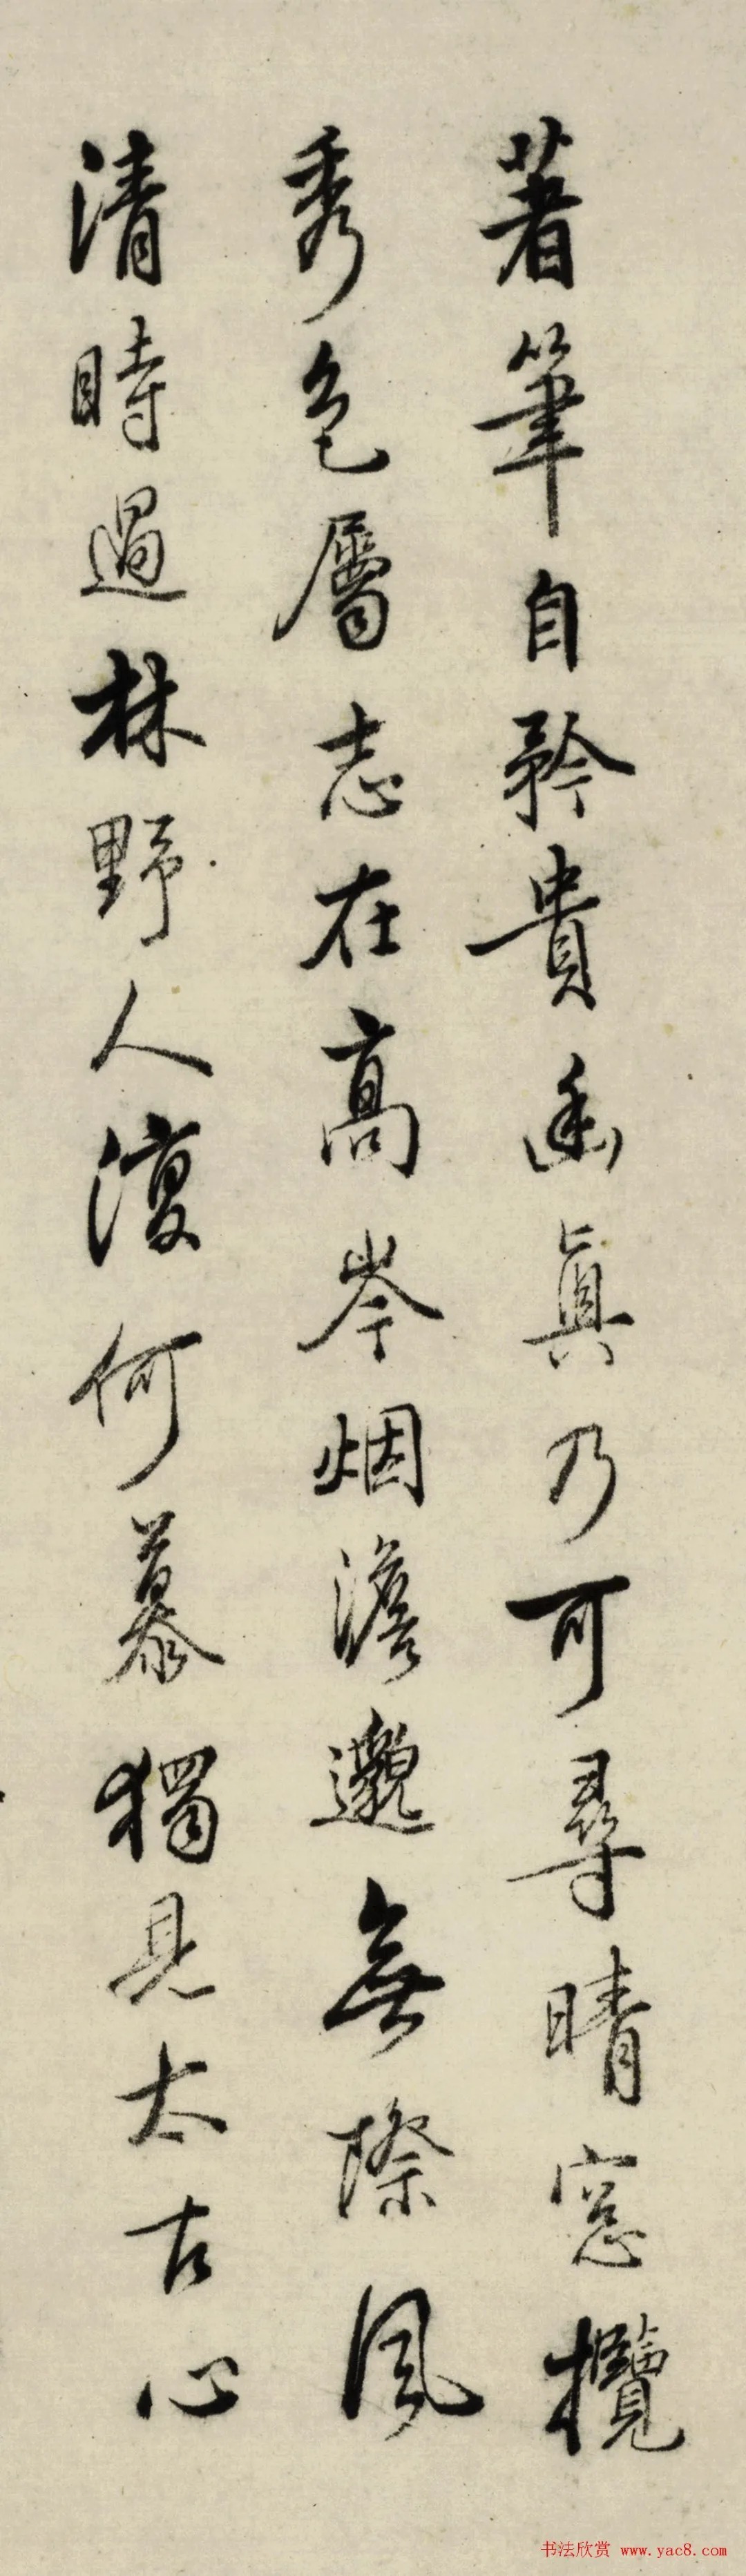 著筆自矜貴幽真乃可尋晴窓攬
秀色屬志在高岑烟澹邈無際風
清時過林野人澓何慕獨見太古心
书法欣赏 www.yac8.com